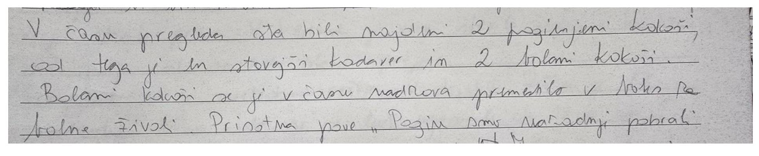 V času pregleda sta bili najdeni 2 poginjeni kokoši,
od tega ji en starejši kadaver in 2 bolani kokoši.
Bolani kokoši se ji v času nadzora premestilo v boks za
bolne živali. Prisotna pove "Pogin smo nazadnji pobrali